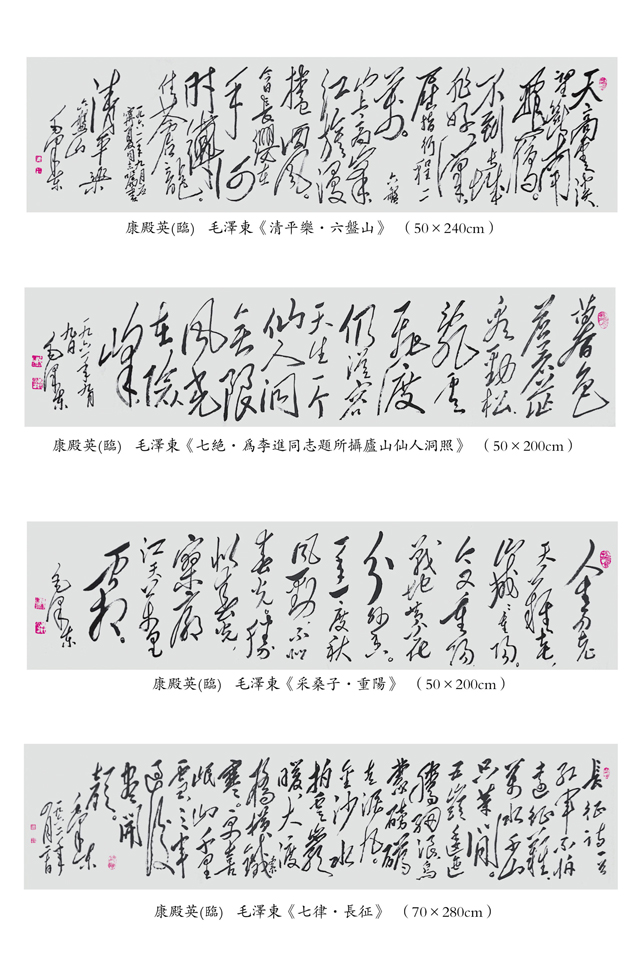 天高雲淡
望斷南
飛雁。
不到長城
非好漢
屈指行程二
萬。
六盤
山上高峯
紅旗漫
捲西風。
今日長纓在
手何
時縛
住蒼龍。
一九六一年九月
寧夏同志囑書
清平樂
六盤山
毛澤東
康殿英(臨) 毛澤東《清平樂·六盤山》 (50×240cm)
暮色
蒼茫
看勁松
亂雲
飛渡
仍從容
天生一个
仙人洞
無限
風光
在險
峰
一九六一年九月
九日
毛澤東
康殿英(臨) 毛澤東《七絶·爲李進同志題所攝廬山仙人洞照》 (50×200cm)
人生易老
天難老,
歲歲重陽。
今又重陽
戰地黃花
分外香。
一年一度秋
風勁,不似
春光。勝
似春光,
寥廓
江天萬里
霜。
毛澤東
康殿英(臨) 毛澤東《采桑子·重陽》 (50×200cm)
長征詩一首
紅軍不怕
遠征難
萬水千山
只等閒。
五嶺逶迤
騰細浪烏
蒙磅礴
走泥丸。
金沙水
拍雲巖
暖大渡
橋橫鐵索
寒更喜
岷山千里
雪三軍
過後
盡開
顏。
毛澤東
一九六二年
康殿英(臨) 毛澤東《七律·長征》 (70×280cm)